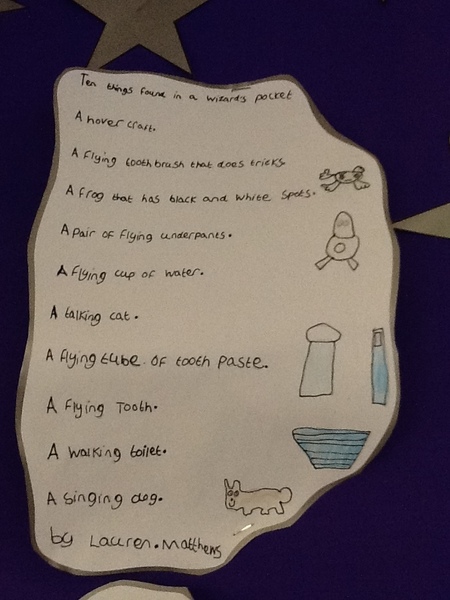 Ten things found in a wizards pocket
A hover craft.
A flying toothbrush that does tricks
A frog that has black and white spots.
A pair of flying underpants.
A flying cup of water.
A talking cat.
A flying tube of tooth paste.
A flying Tooth.
A walking toilet.
A singing dog.
by Lauren.Matthews